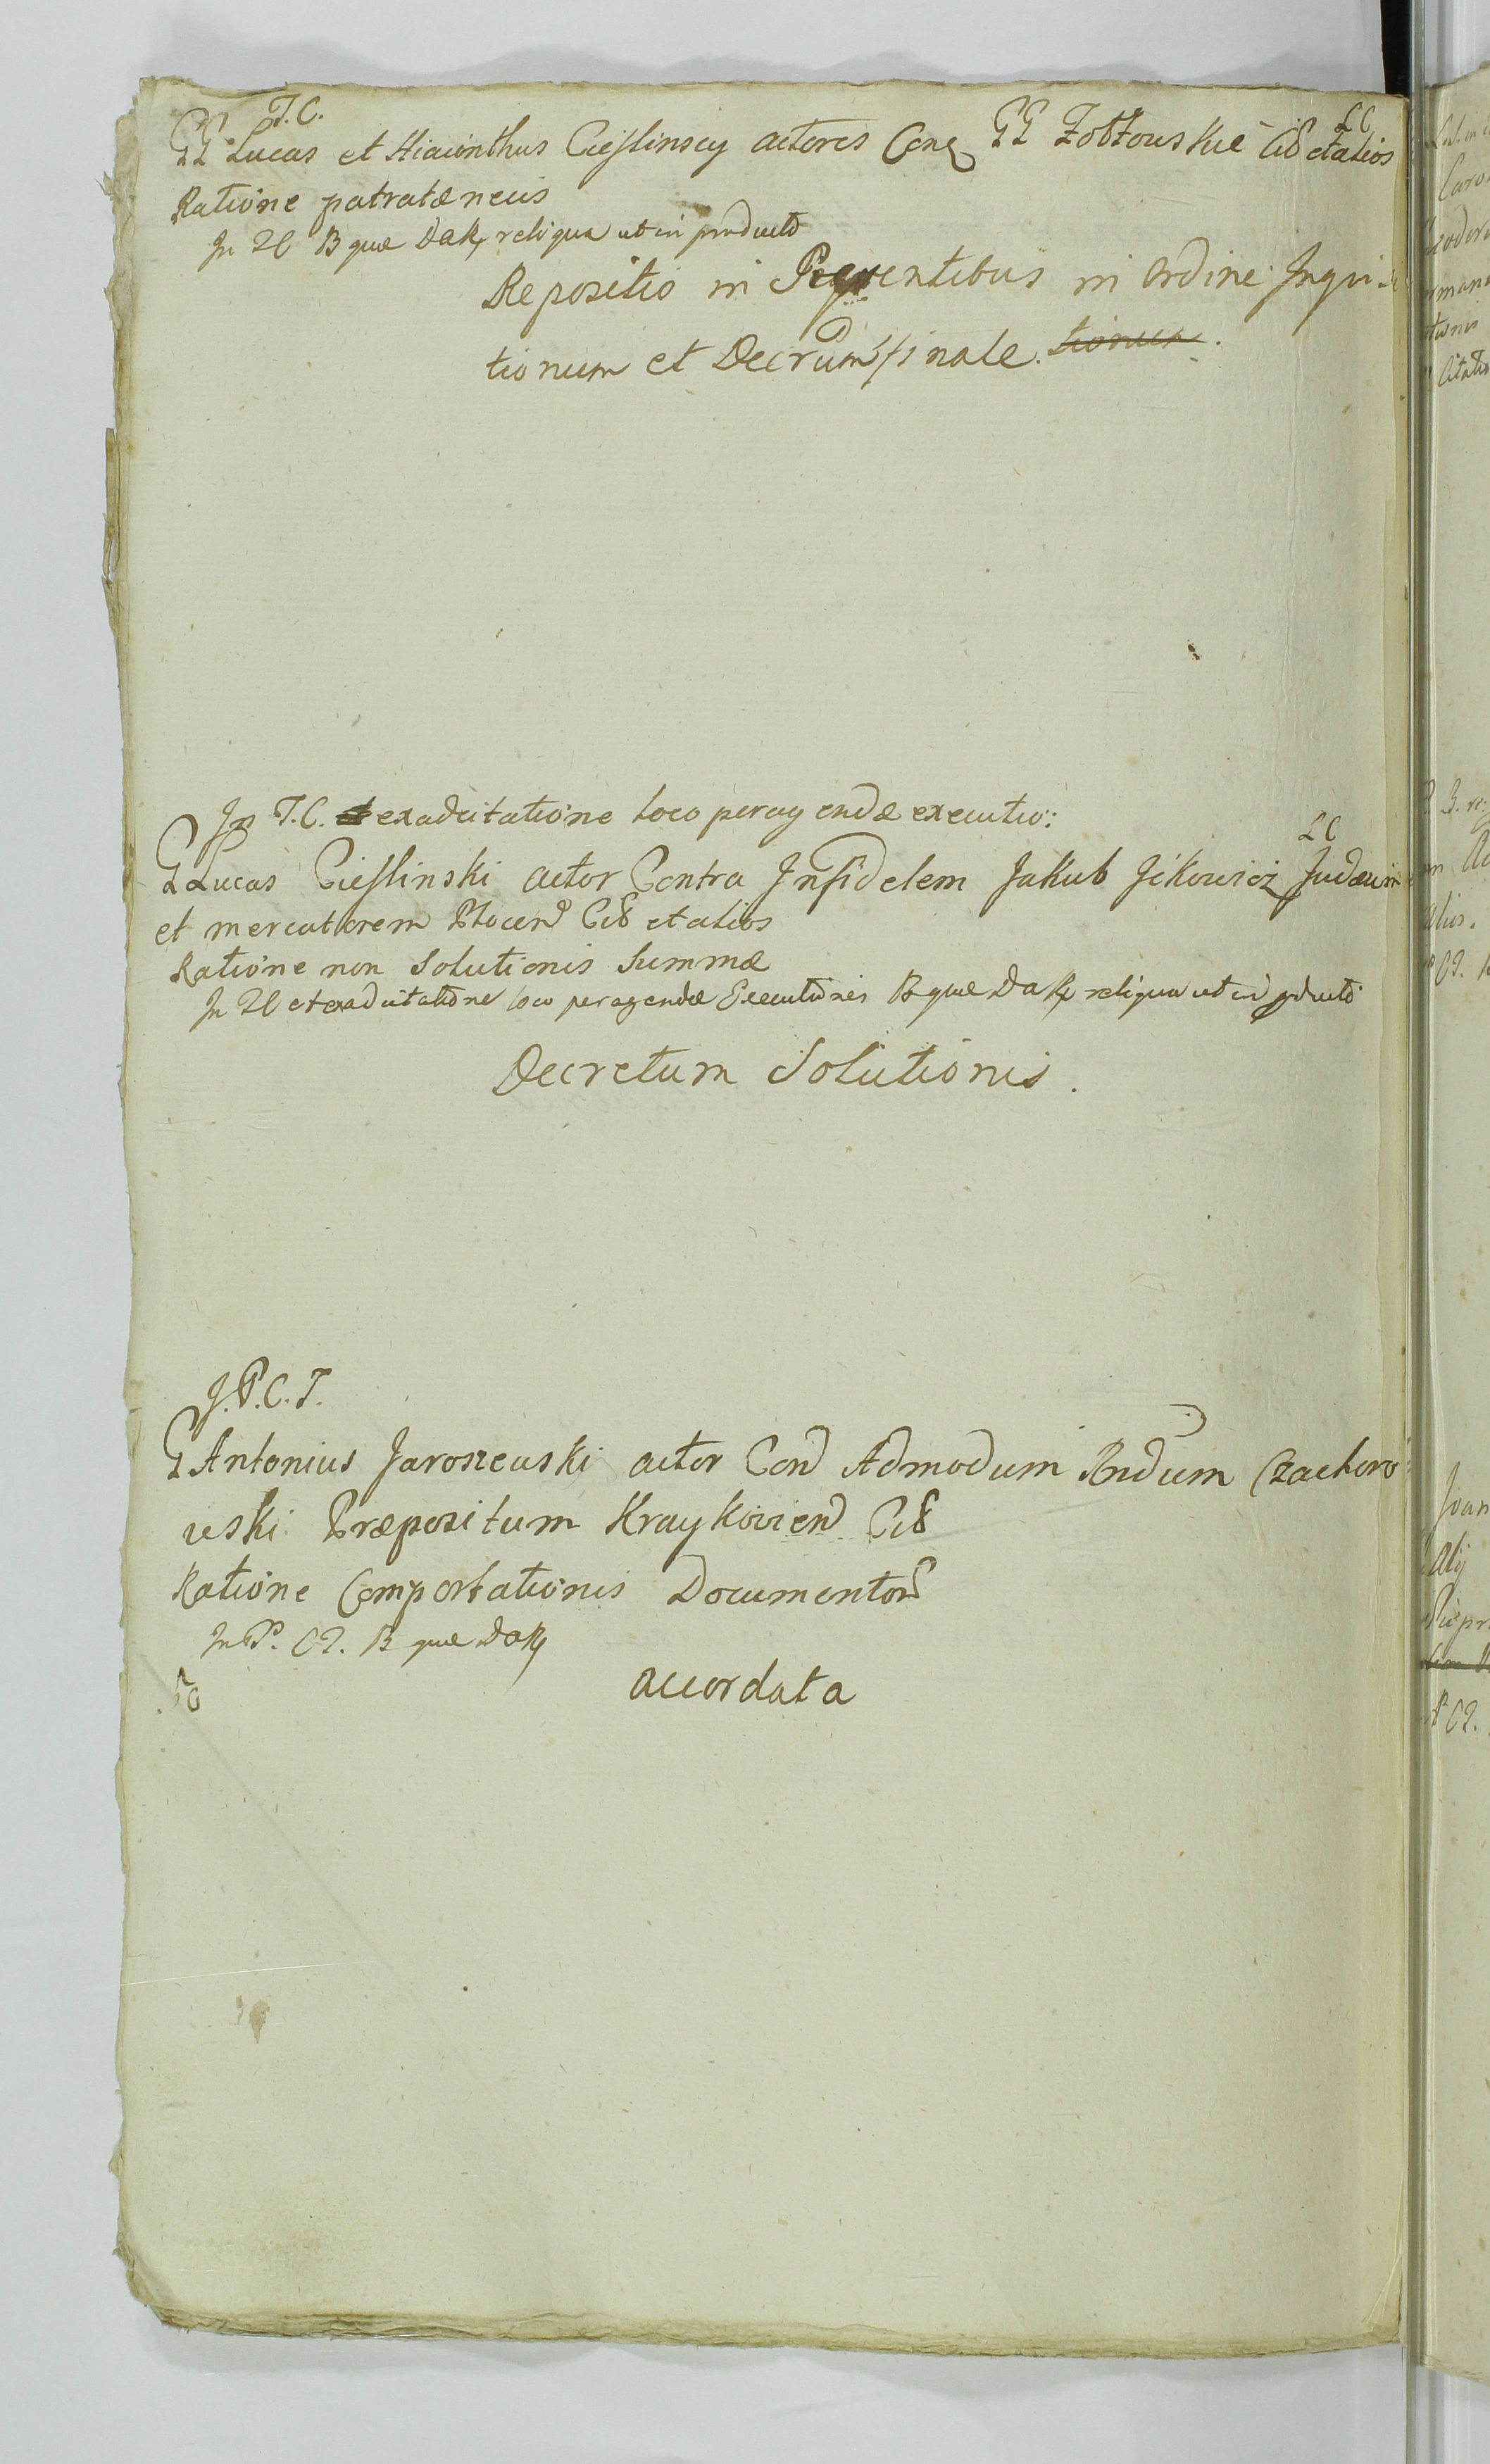 T.C. LC
GG Lucas et Hiacinthus Cieslinscy actores Con GG Zołtowskie Cit et alios
Ratione patratæ necis
In TC B quæ DaR reliqua ut in producto
Repositio in Regentibus in Ordine Inqui-
tionum et Decrum finale.
In T.C. exadcitatione loco peragendæ executio:
LC
G Lucas Cieslinski actor Contra Infidelem Jakub Jckowicz Judæum
et mercatorem Plocen Cit et alios
Ratione non Solutionis Summæ
In TC et exadcitatione loco peragendæ Executionis B quæ DaR reliqua ut in pducto
Decretum Solutionis.
J.P.C.T.
G Antonius Jaroszewski actor Con Admodum Rndum Czachoro
wski Præpositum Kraykovien Cit
Ratione Comportationis Documentor
In P. CT. B quæ DaR
accordata